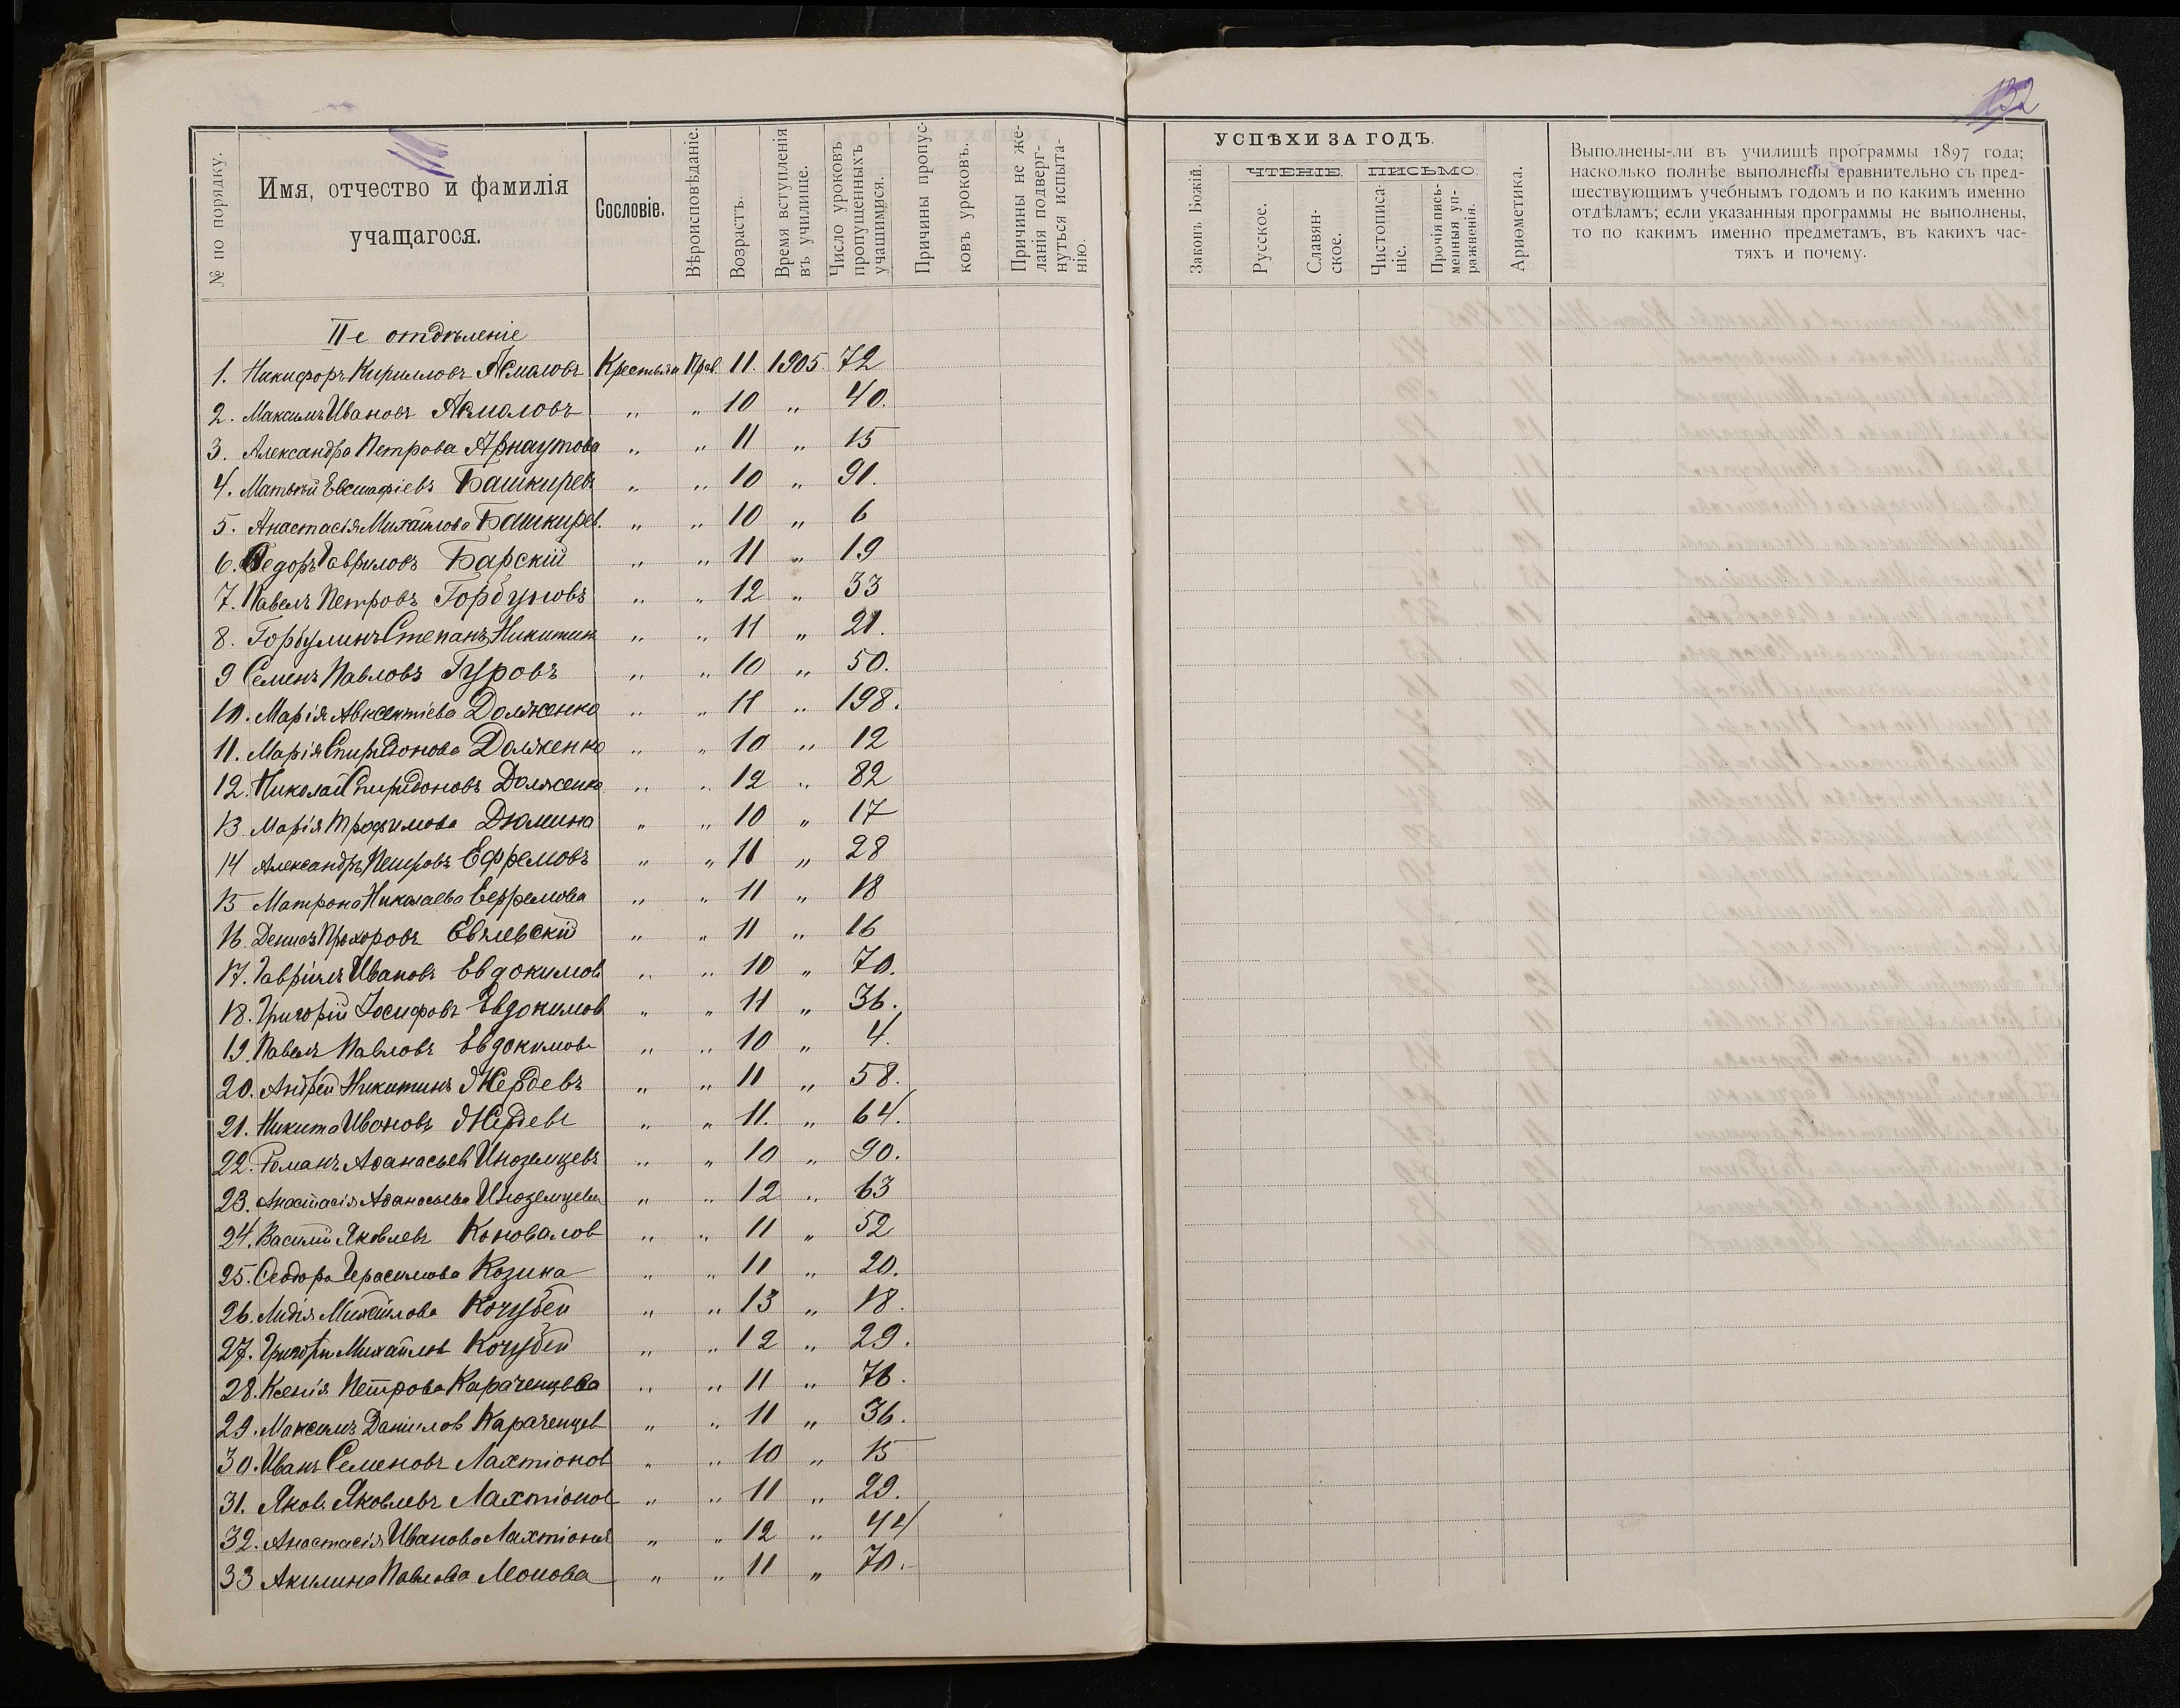 132
№ по порядку.
Имя, отчество и фамилія учащагося.
Сословіе.
Вѣроисповѣданіе.
Возрастъ.
Время вступленія въ училище.
Число уроковъ пропущенныхъ учащимися.
Причины пропусковъ уроковъ.
Причины не желанія подвергнуться испытанію.
УСПѢХИ ЗА ГОДЪ.
Законъ Божій.
ЧТЕНІЕ
Русское.
Славянское.
ПИСЬМО.
Чистописаніе.
Прочія письменныя упражненія.
Ариѳметика.
Выполнены-ли въ училищѣ программы 1897 года;
насколько полнѣе выполнены сравнительно съ пред-
шествующимъ учебнымъ годомъ и по какимъ именно
отдѣламъ; если указанныя программы не выполнены,
то по какимъ именно предметамъ, въ какихъ час-
тяхъ и почему.
II-е отдѣленіе
1. Никифоръ Кирилловъ Асмаловъ Крестьян Прав. 11. 1905. 72
2. Максимъ Ивановъ Асмаловъ „ „ 10 „ 40.
3. Александра Петрова Арнаутова „ „ 11 „ 15
4. Матвѣй Евстафіевъ Башкиревъ „ „ 10 „ 91.
5. Анастасія Михайлова Башкирев. „ „ 10 „ 6
6. Ѳедоръ Гавриловъ Барскій „ „ 11 „ 19
7. Павелъ Петровъ Горбуновъ „ „ 12 „ 33
8. Горбулинъ Степанъ Никитин „ „ 11 „ 21.
9 Семенъ Павловъ Гуровъ „ „ 10 „ 50.
10. Марія Авксентіева Долженко „ „ 11 „ 198.
11. Марія Спиридонова Долженко „ „ 10 „ 12
12. Николай Спиридоновъ Долженко „ „ 12 „ 82
13. Марія Трофимова Дюмина „ „ 10 „ 17
14 Александръ Петровъ Ефремовъ „ „ 11 „ 28
15 Матрона Николаева Ефремова „ „ 11 „ 18
16. Денисъ Прохоровъ Евлевскій „ „ 11 „ 16
17. Гавріилъ Ивановъ Евдокимов „ „ 10 „ 70.
18. Григорій Іосифовъ Евдокимов „ „ 11 „ 36.
19. Павелъ Павловъ Евдокимовъ „ „ 10 „ 4.
20. Андрей Никитинъ Жердевъ „ „ 11 „ 58.
21. Никита Ивановъ Жердевъ „ „ 11. „ 64.
22. Романъ Аѳанасьев Иноземцевъ „ „ 10 „ 90.
23. Анастасія Аѳанасьева Иноземцева „ „ 12 „ 63
24. Василій Яковлевъ Коновалов „ „ 11 „ 52
25. Ѳеодора Герасимова Козина „ „ 11 „ 20.
26. Лидія Михайлова Кочубей „ „ 13 „ 18.
27. Григорій Михайлов Кочубей „ „ 12 „ 29.
28. Ксенія Петрова Караченцева „ „ 11 „ 76.
29. Максимъ Даніилов Караченцев „ „ 11 „ 36.
30. Иванъ Семеновъ Лахтіонов „ „ 10 „ 15
31. Яковъ Яковлевъ Лахтіонов „ „ 11 „ 29.
32. Анастасія Иванова Лахтіонов „ „ 12 „ 44
33 Акилина Павлова Леонова „ „ 11 „ 70.